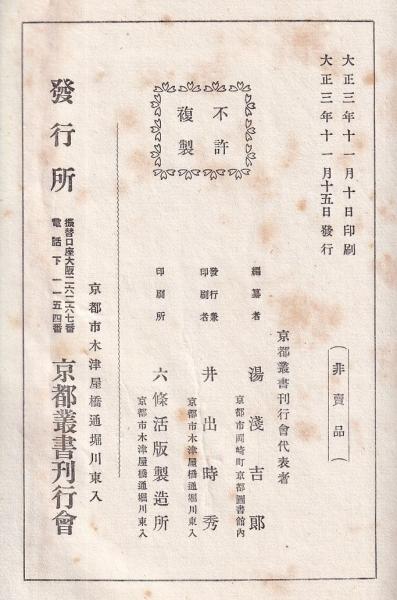 大正三年十一月十日印刷
大正三年十一月十五日發行
（非賣品）
不許
複製
京都叢書刊行會代表者
編纂者　湯淺吉郎
京都市岡崎町京都圖書館內
發行兼
印刷者　井出時秀
京都市木津屋橋通堀川東入
印刷所　六條活版製造所
京都市木津屋橋通堀川東入
京都市木津屋橋通堀川東入
發行所　京都叢書刊行會
振替口座大阪二六二六七番
電話下一一五四番